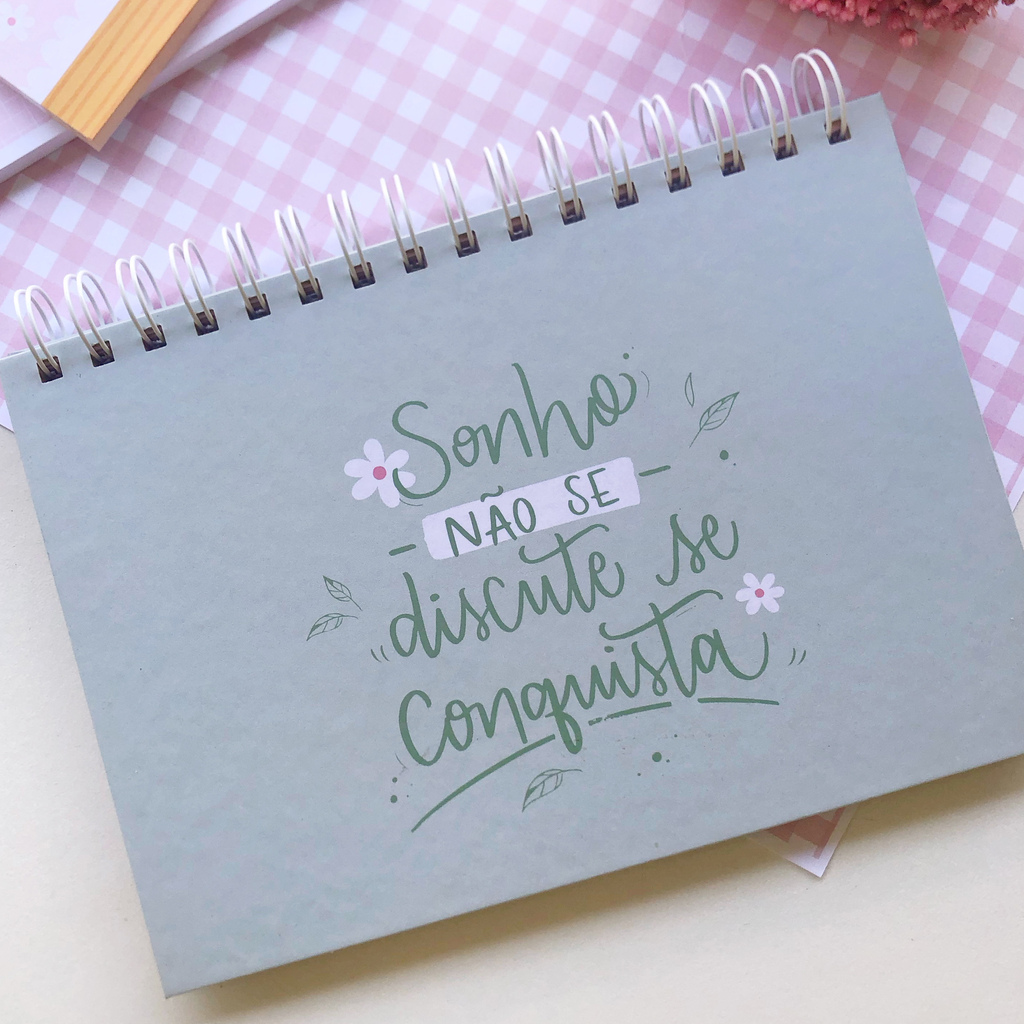 Sonho
NÃO SE
discute se
Conquista